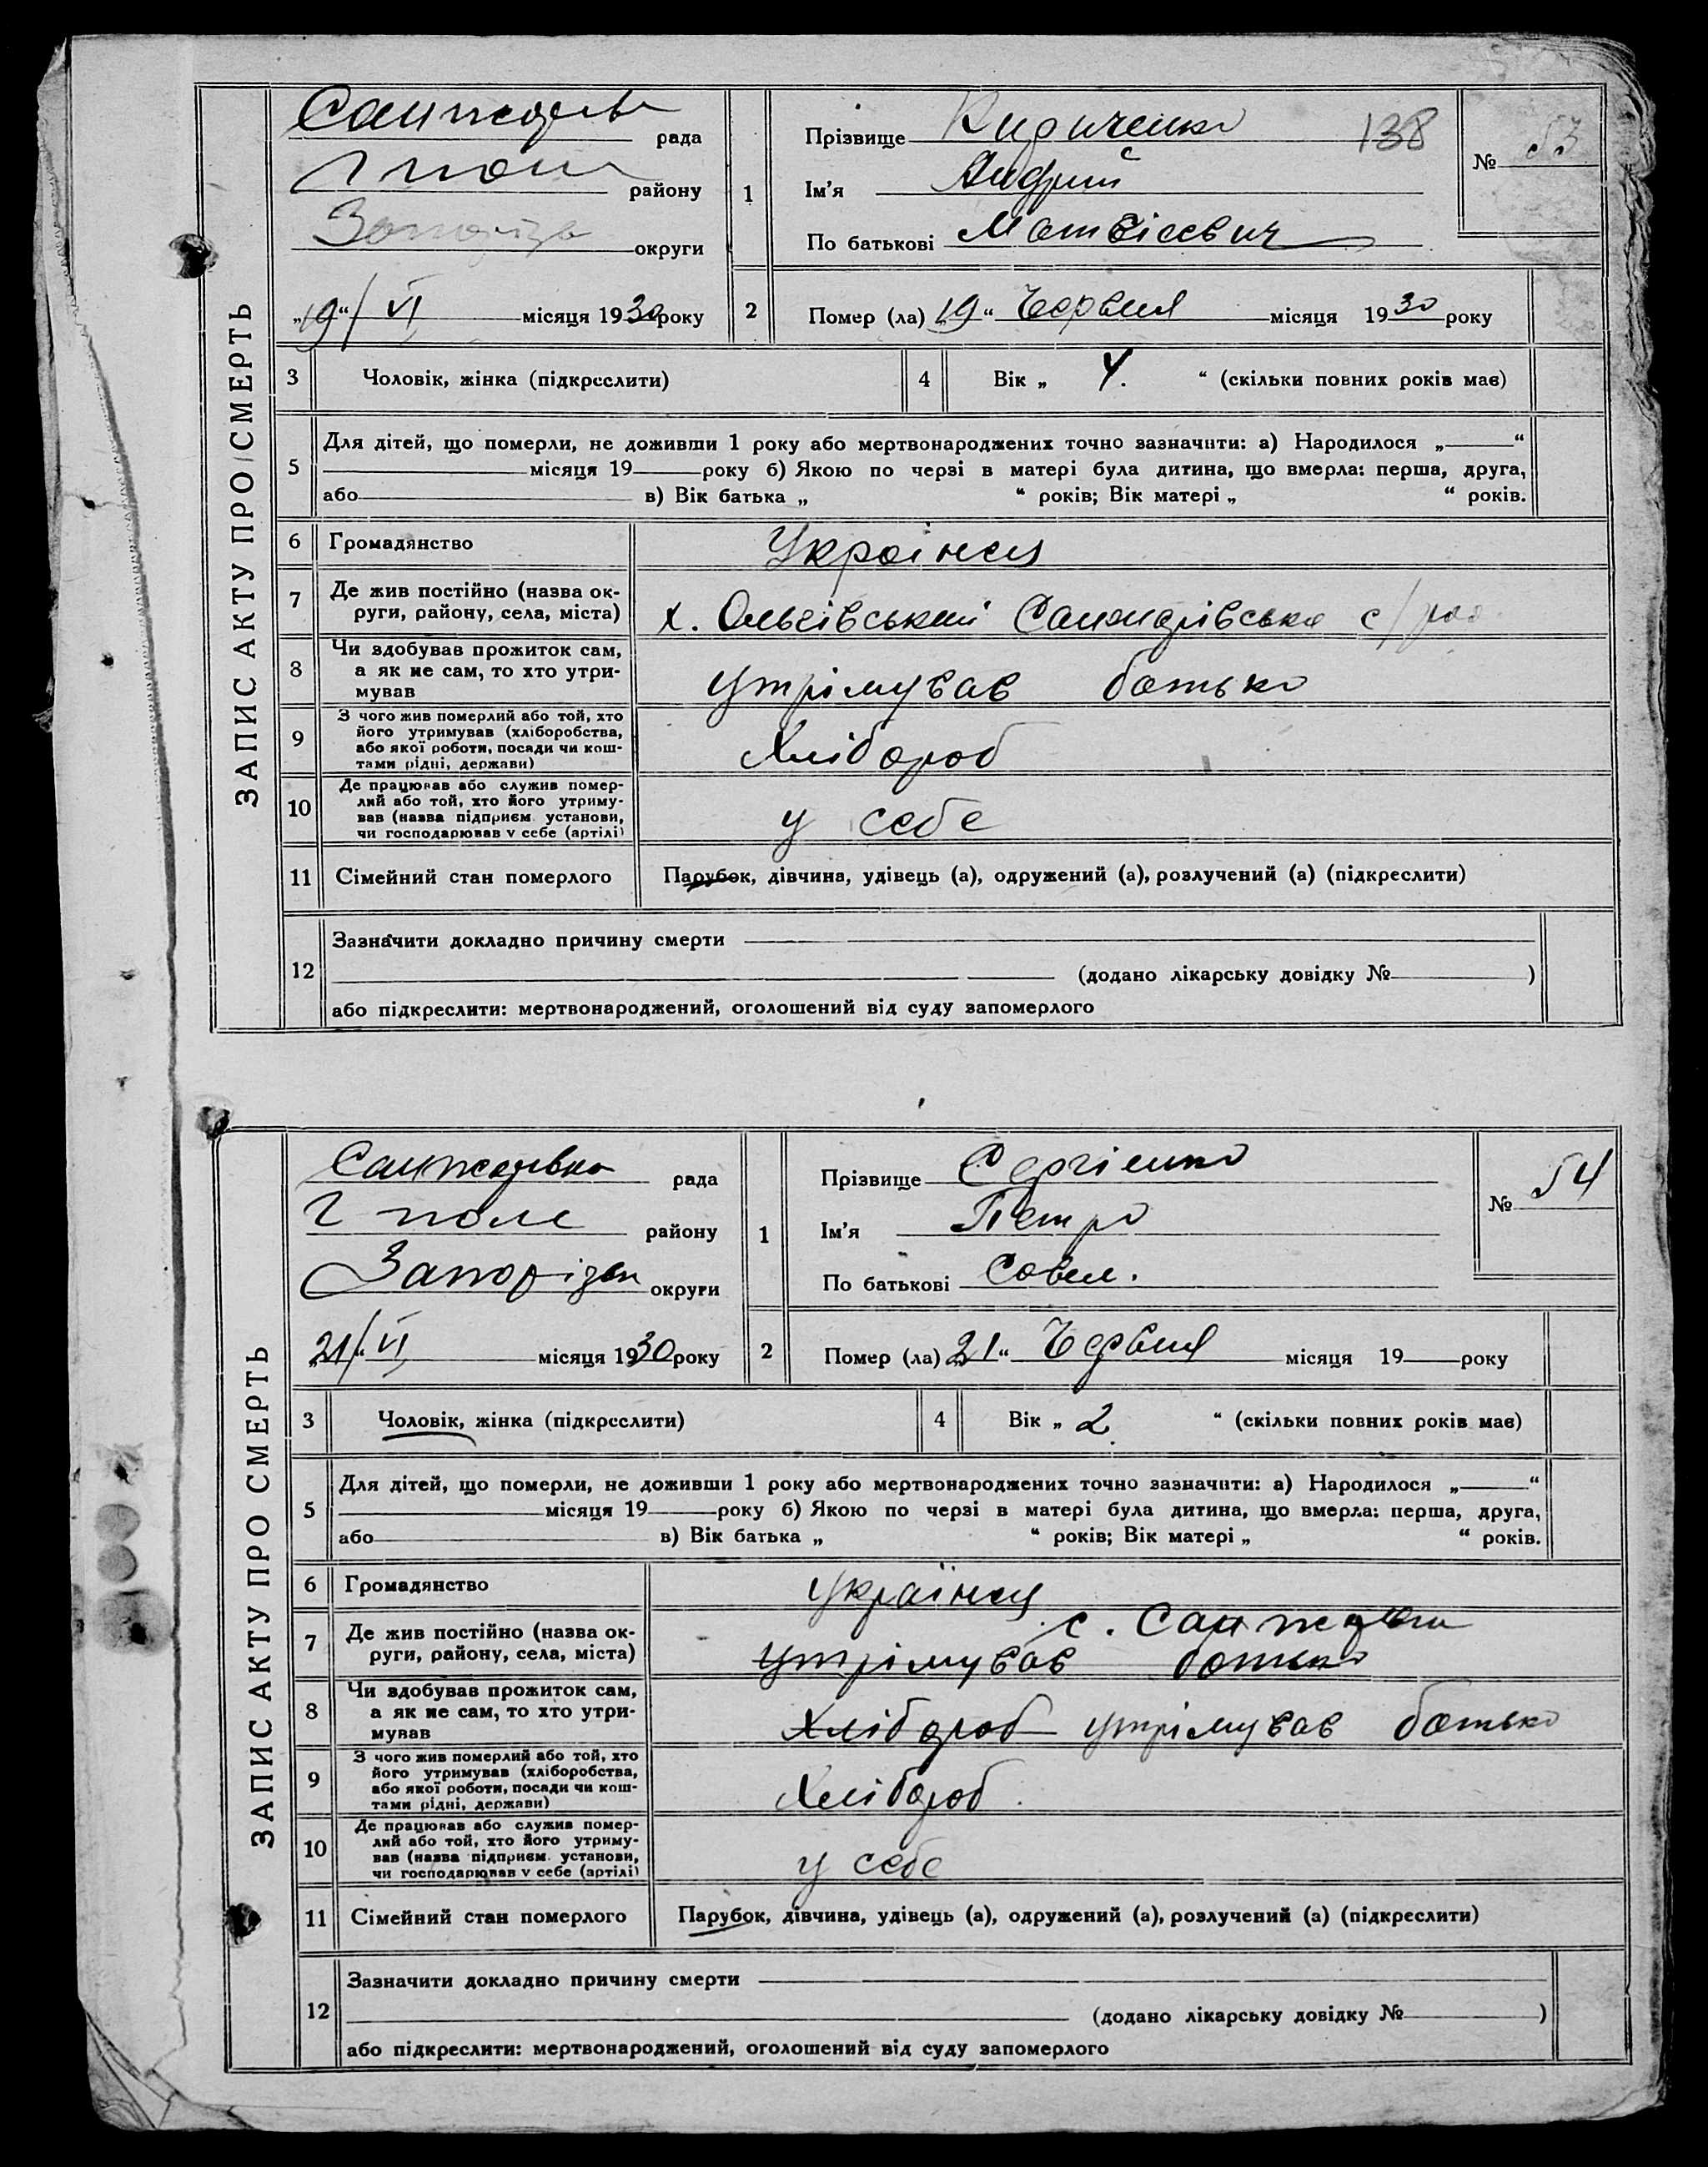 ЗАПИС АКТУ ПРО СМЕРТЬ
рада
району
округи
„19“/VI місяця 1930 року
1
Прізвище
138
Ім'я Андрий
По батькові Матвієвич
№ 53
2
Помер (ла) „19“ Червня місяця 1930 року
3 Чоловік, жінка (підкреслити)
4 Вік „ 4. “ (скільки повних років має)
5
Для дітей, що померли, не доживши 1 року або мертвонароджених точно зазначити: а) Народилося „ “
місяця 19 року б) Якою по черзі в матері була дитина, що вмерла: перша, друга,
або в) Вік батька „ “ років; Вік матері „ “ років.
6 Громадянство Українец
7 Де жив постійно (назва ок-
руги, району, села, міста) х. Ольгівський Санжарівська с/рад
8 Чи здобував прожиток сам,
а як не сам, то хто утри-
мував утрімував батько
9 З чого жив померлий або той, хто
його утримував (хліборобства,
або якої роботи, посади чи кош-
тами рідні, держави) Хлібороб
10 Де працював або служив помер-
лий або той, хто його утриму-
вав (назва підприєм. установи,
чи господарював у себе (артілі) у себе
11 Сімейний стан померлого Парубок, дівчина, удівець (а), одружений (а), розлучений (а) (підкреслити)
12
Зазначити докладно причину смерти
(додано лікарську довідку № )
або підкреслити: мертвонароджений, оголошений від суду запомерлого
ЗАПИС АКТУ ПРО СМЕРТЬ
рада
Г поле району
Запорізьк округи
„21“/VI місяця 1930 року
1
Прізвище Сергієнко
Ім'я Петро
По батькові Савел.
№ 54
2
Помер (ла) „21“ Червня місяця 19 року
3 Чоловік, жінка (підкреслити)
4 Вік „ 2. “ (скільки повних років має)
5
Для дітей, що померли, не доживши 1 року або мертвонароджених точно зазначити: а) Народилося „ “
місяця 19 року б) Якою по черзі в матері була дитина, що вмерла: перша, друга,
або в) Вік батька „ “ років; Вік матері „ “ років.
6 Громадянство українец
7 Де жив постійно (назва ок-
руги, району, села, міста) с.
утрімував батько
8 Чи здобував прожиток сам,
а як не сам, то хто утри-
мував Хлібороб утрімував батько
9 З чого жив померлий або той, хто
його утримував (хліборобства,
або якої роботи, посади чи кош-
тами рідні, держави) Хлібороб.
10 Де працював або служив помер-
лий або той, хто його утриму-
вав (назва підприєм. установи,
чи господарював у себе (артілі) у себе
11 Сімейний стан померлого Парубок, дівчина, удівець (а), одружений (а), розлучений (а) (підкреслити)
12
Зазначити докладно причину смерти
(додано лікарську довідку № )
або підкреслити: мертвонароджений, оголошений від суду запомерлого